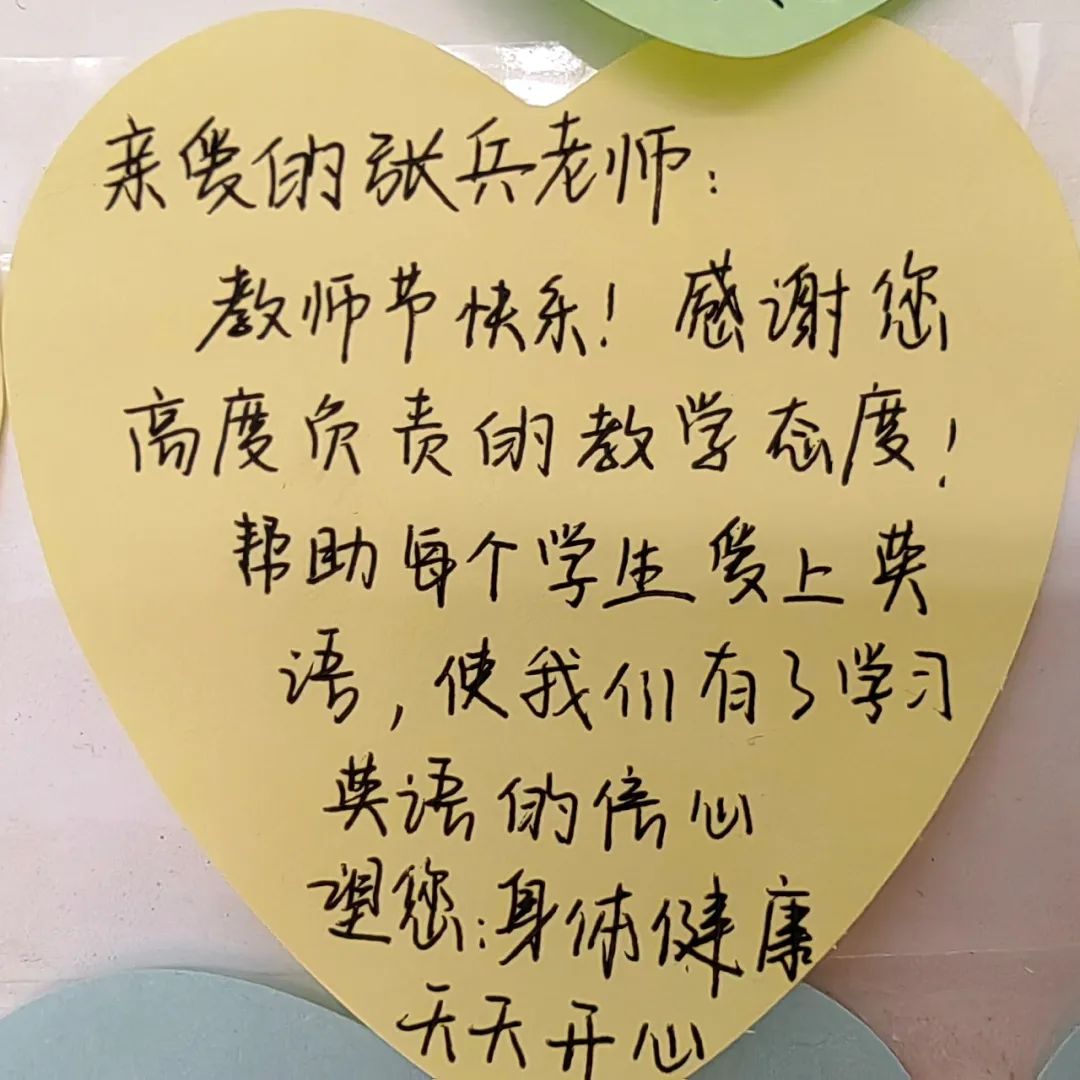 亲爱的张兵老师：
教师节快乐！感谢您
高度负责的教学态度！
帮助每个学生爱上英
语，使我们有了学习
英语的信心
望您：身体健康
天天开心